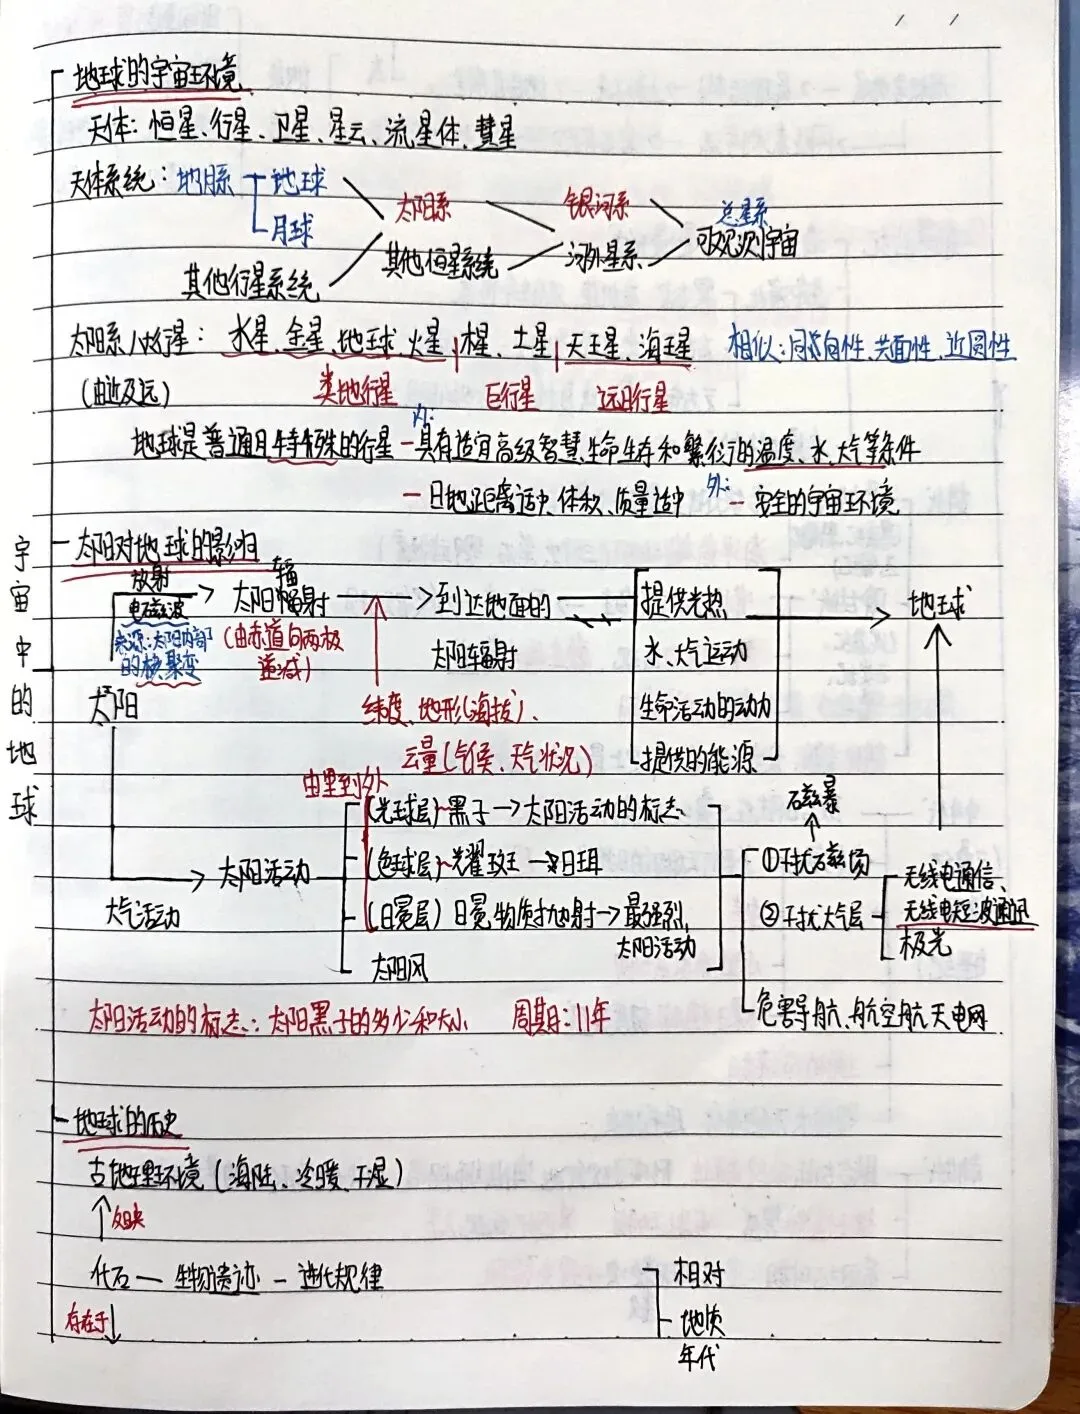 地球的宇宙环境
天体：恒星、行星、卫星、星云、流星体、彗星
天体系统：地月系 地球
月球
太阳系 银河系 总星系
其他恒星系统 河外星系 可观测宇宙
其他行星系统
太阳系八大行星：水星、金星、地球、火星、木星、土星、天王星、海王星 相似：同向性、共面性、近圆性
(由近及远) 类地行星 巨行星 远日行星
内：
地球是普通且特殊的行星 具有适宜高级智慧生命生存和繁衍的温度、水、大气等条件
日地距离适中、体积、质量适中 外： 安全的宇宙环境
宇宙中的地球
太阳对地球的影响
放射 辐
电磁波 太阳辐射 到达地面的 提供光热 地球
来源：太阳内部 (由赤道向两极
的核聚变 递减) 太阳辐射 水、大气运动
太阳 纬度、地形(海拔)、 生命活动的动力
云量(气候、天气状况) 提供的能源
由里到外 磁暴
(光球层) 黑子→太阳活动的标志
太阳活动 (色球层) 耀斑→日珥 ①干扰磁场
大气活动 (日冕层) 日冕物质抛射→最强烈 ②干扰大气层 无线电通信、
太阳活动 无线电短波通讯
太阳风 极光
太阳活动的标志：太阳黑子的多少和大小 周期：11年 危害导航、航空航天电网
地球的历史
古地理环境(海陆、冷暖、干湿)
反映
化石 — 生物遗迹 — 进化规律 相对
存在于 地质
年代